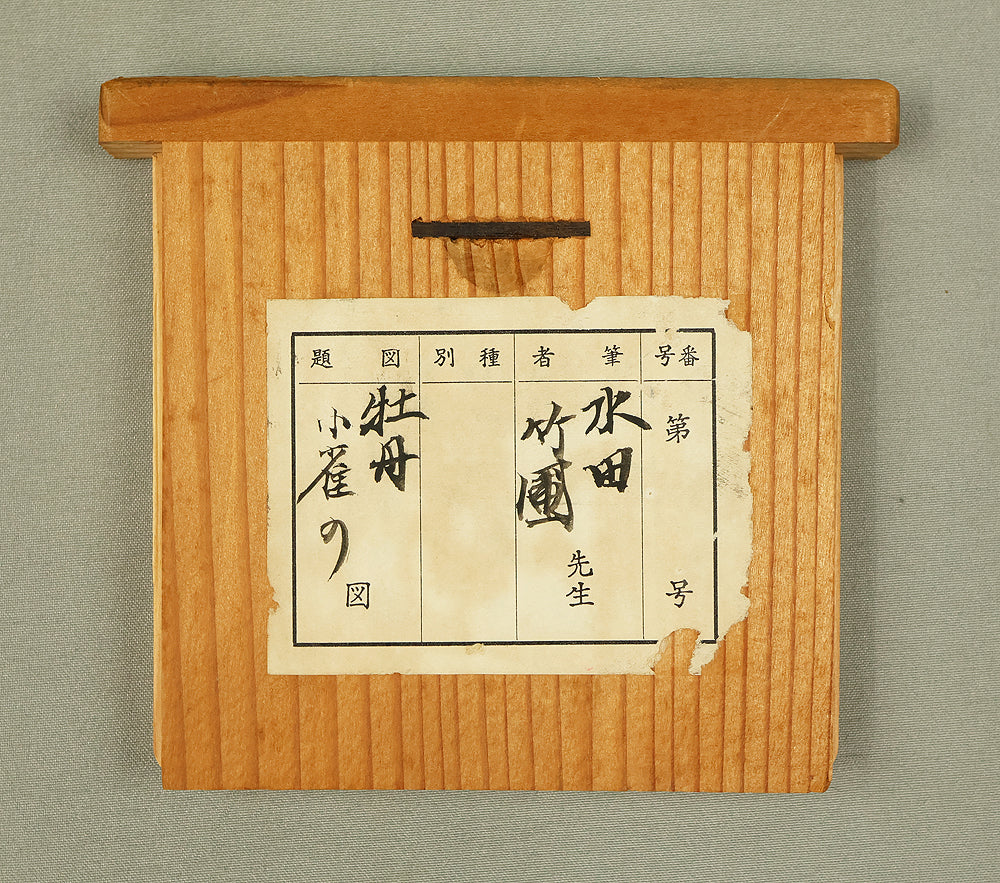 番号
第 号
筆者
水田
竹圃
先生
種別
図題
牡丹
小雀の
図